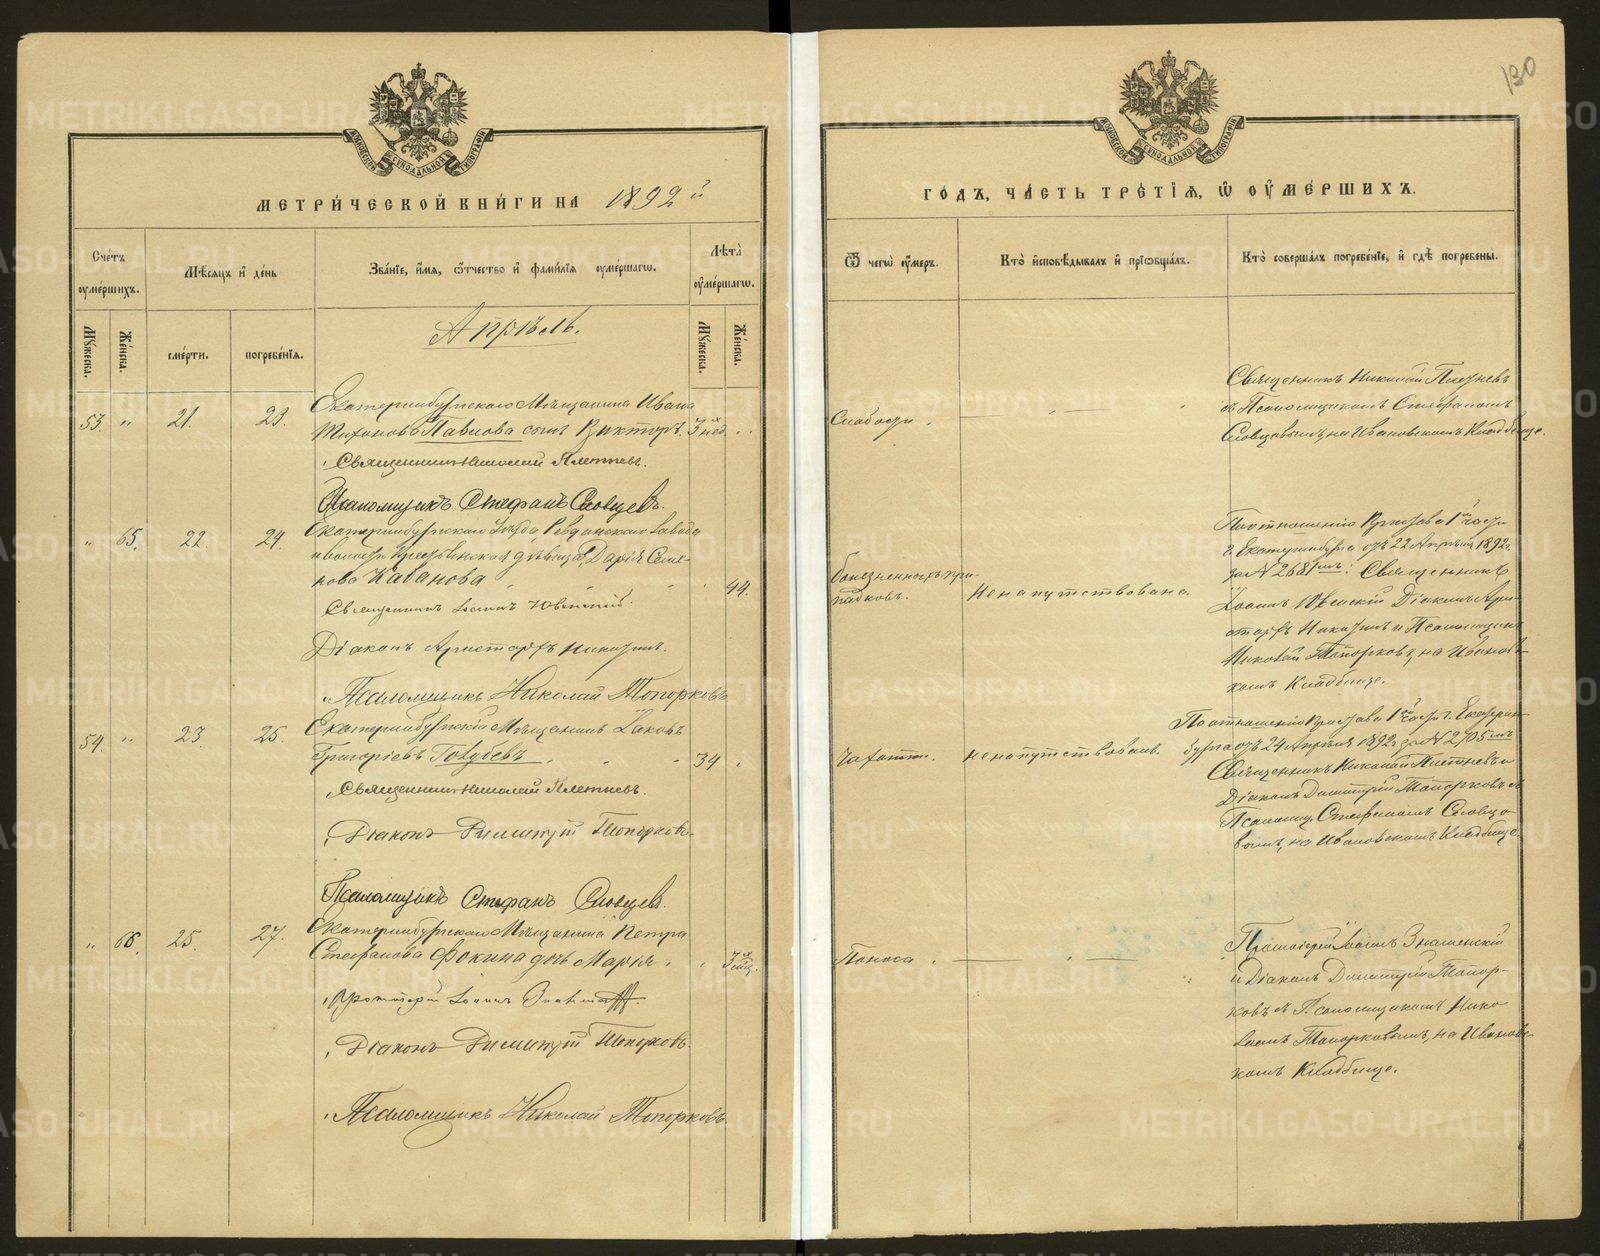 130
МЕТРИ́ЧЕСКОЙ КНИ́ГИ НА 1892 й
Сче́тъ оуме́ршихъ.
Мѣ́сяцъ и҆ де́нь
Зва́нїе, и҆́мя, ѻ҆́тчество и҆ фами́лїя оуме́ршагѡ.
Лѣ́та оуме́ршагѡ.
Му́жеска.
Же́нска.
сме́рти.
погребе́нїя.
Му́жеска.
Же́нска.
Апрѣль.
53. " 21. 23. Екатеринбургскаго Мѣщанина Ивана
Тихонова Павлова сынъ Викторъ. 3 нед.
Священникъ Николай Плетневъ.
Псаломщикъ Стефанъ Словцевъ.
" 65. 22. 24. Екатеринбургскаго Уѣзда Ревдинскаго завода
и волости Крестьянская дѣвица Дарія Семе-
нова Кабанова 44.
Священникъ Іоаннъ
Діаконъ Аристархъ Никитинъ.
Псаломщикъ Николай Топорковъ
54. " 23. 25. Екатеринбургскій Мѣщанинъ Іаковъ
Григорьевъ Голубевъ 34
Священникъ Николай Плетневъ.
Діаконъ Димитрій Топорковъ.
Псаломщикъ Стефанъ Словцевъ.
" 66. 25. 27. Екатеринбургскаго Мѣщанина Петра
Стефанова Фокина дочь Марія. 3 мѣс.
Протоіерей Іоаннъ Знаменскій.
Діаконъ Димитрій Топорковъ.
Псаломщикъ Николай Топорковъ.
ГО́ДЪ, ЧА́СТЬ ТРЕ́ТЇЯ, Ѡ҆ ОУМЕ́РШИХЪ.
Ѿ чегѡ̀ оу́меръ.
Кто̀ и҆сповѣ́дывалъ и҆ прїѡбща́лъ.
Кто̀ соверша́лъ погребе́нїе, и҆ гдѣ̀ погребены̀.
Слабости.
Священникъ Николай Плетневъ
съ Псаломщикомъ Стефаномъ
Словцовымъ, на Ивановскомъ Кладбище.
болезненныхъ при-
падковъ.
Не напутствована.
По отношенію Пристава 1й части
г. Екатеринбурга отъ 22 Апрѣля 1892 г.
за № 2681мъ: Священникъ
Іоаннъ Діаконъ Ари-
стархъ Никитинъ и Псаломщикъ
Николай Топорковъ, на Ивановс-
комъ Кладбище.
Чахотки.
не напутствованъ.
По отношенію Пристава 1й части г. Екатерин-
бурга отъ 24 Апрѣля 1892 г. за № 2705мъ
Священникъ Николай Плетневъ и
Діаконъ Димитрій Топорковъ съ
Псаломщ. Стефаномъ Словцо-
вымъ, на Ивановскомъ Кладбище.
Поноса
Протоіерей Іоаннъ Знаменскій
и Діаконъ Димитрій Топор-
ковъ съ Псаломщикомъ Нико-
лаемъ Топорковымъ, на Ивановс-
комъ Кладбище.
METRIKI.GASO-URAL.RU